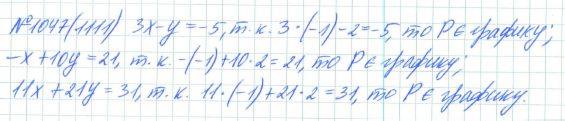 №1047(1111) 3x-y=-5, т.к. 3·(-1)-2=-5, то P∈графику;
-x+10y=21, т.к. -(-1)+10·2=21, то P∈графику;
11x+21y=31, т.к. 11·(-1)+21·2=31, то P∈графику.